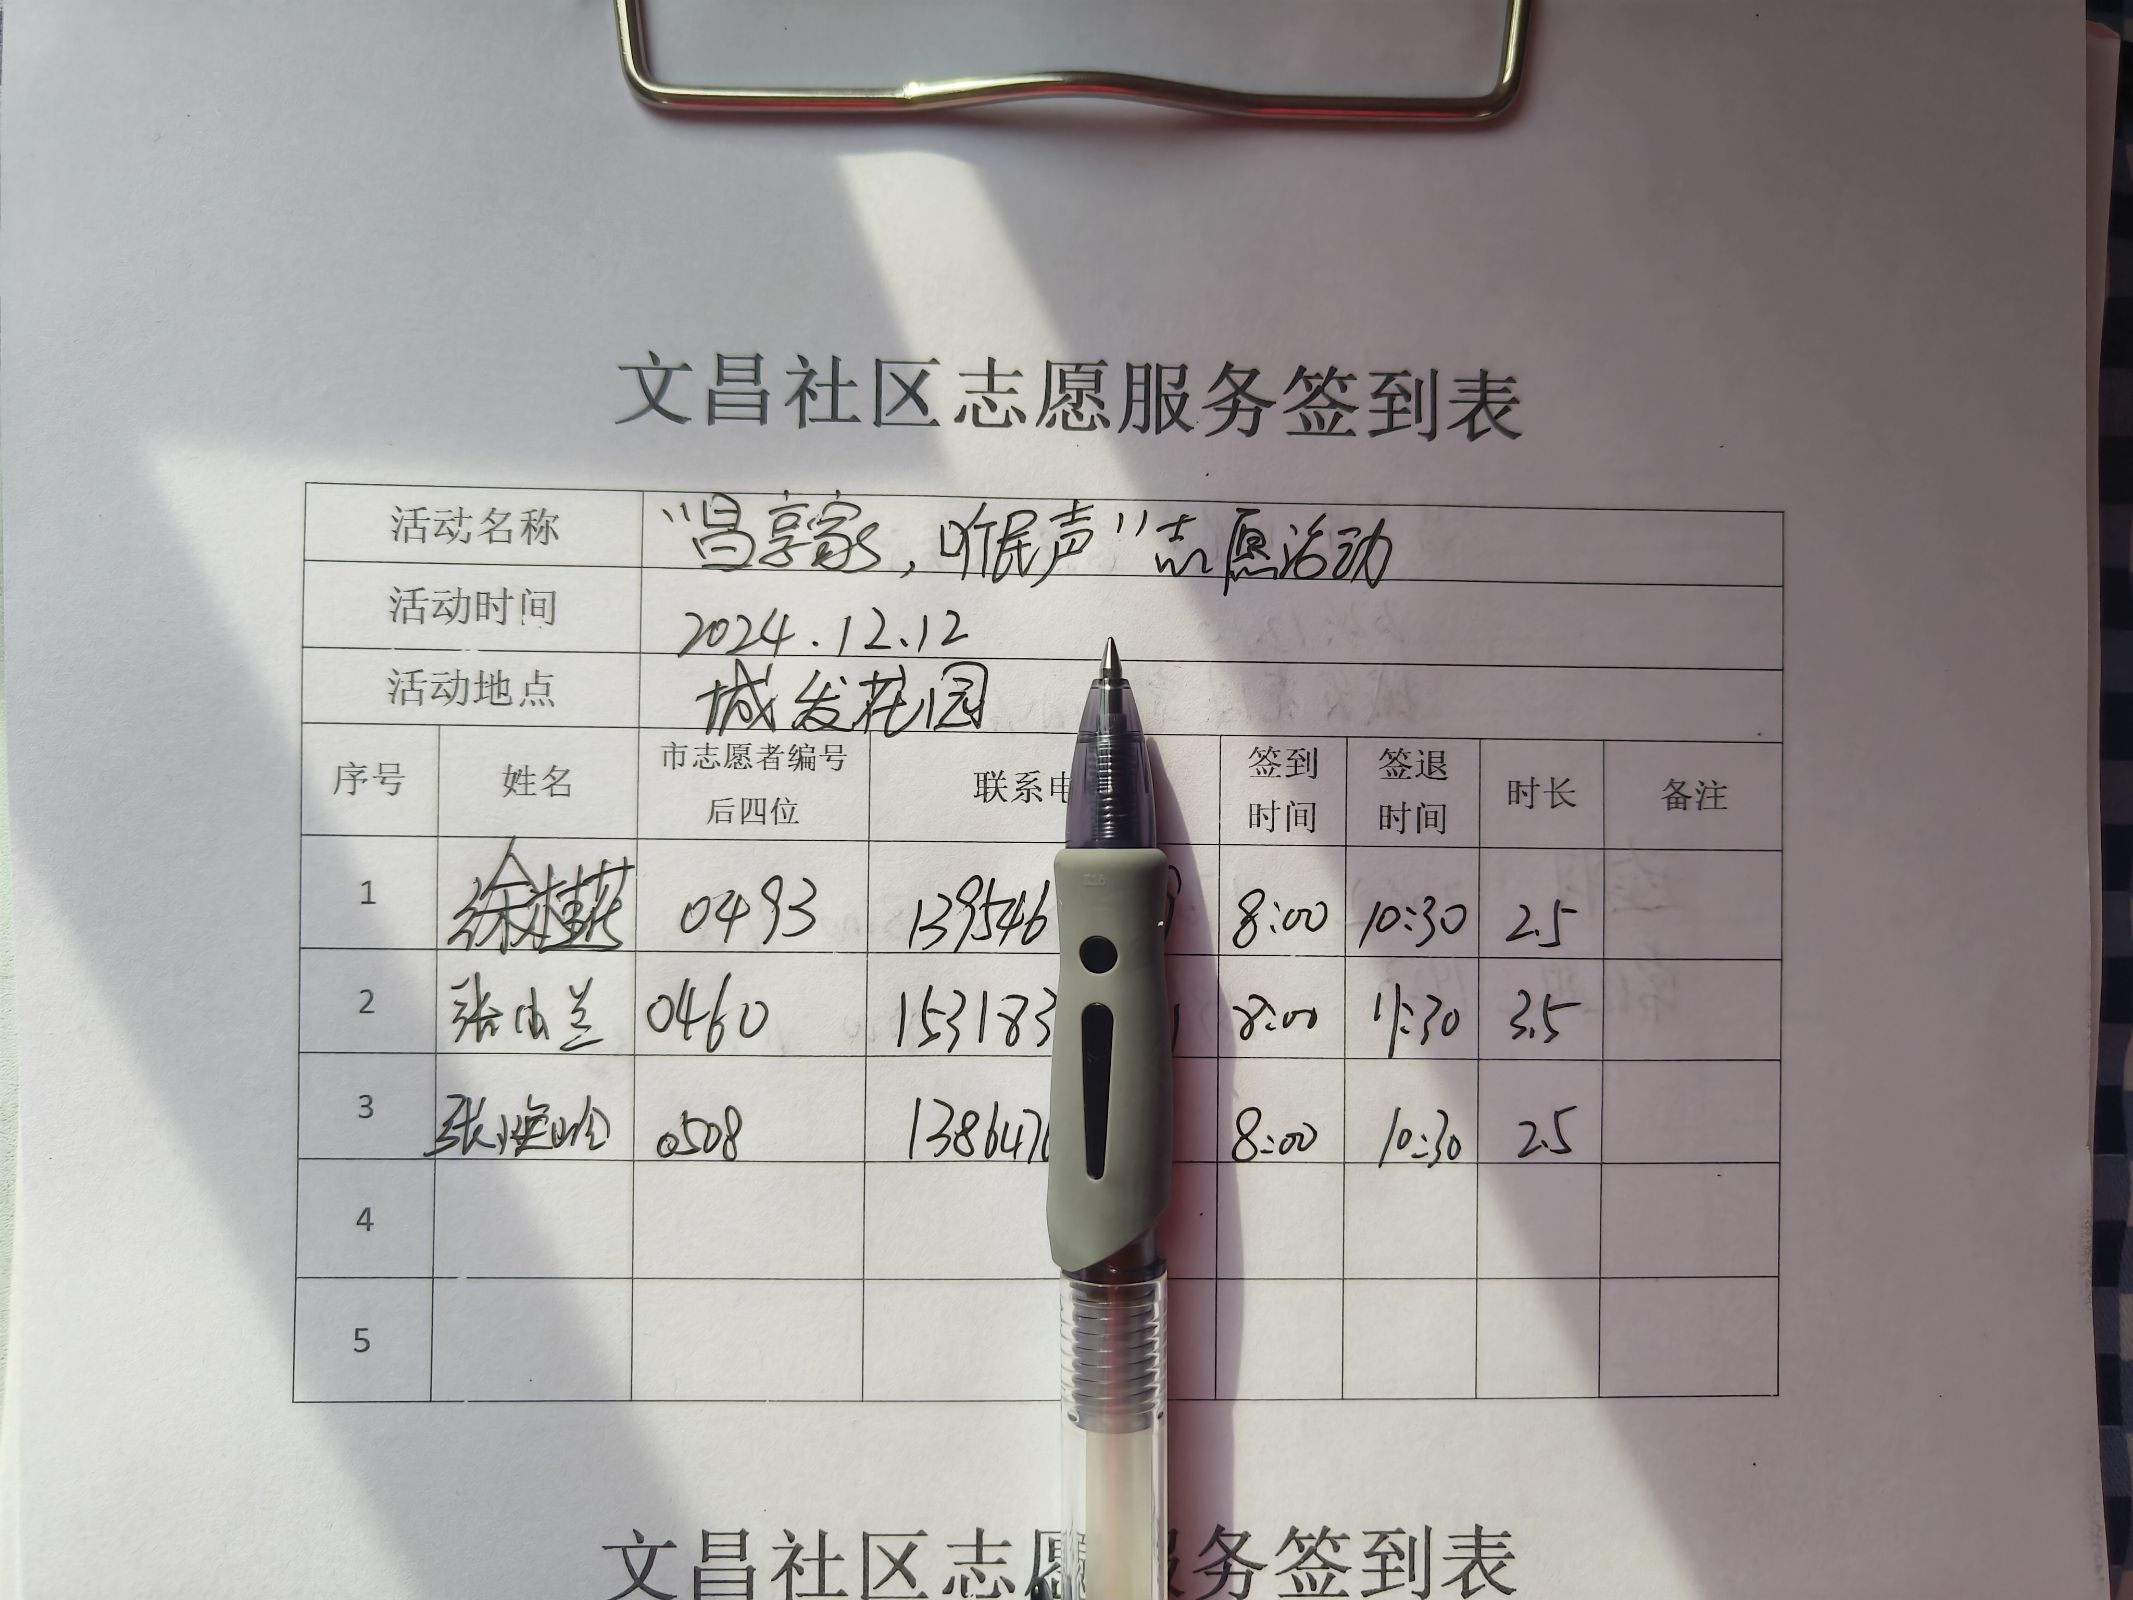 文昌社区志愿服务签到表
活动名称 “昌享家,听民声”志愿活动
活动时间 2024.12.12
活动地点 城发花园
序号 姓名 市志愿者编号后四位 联系电 签到时间 签退时间 时长 备注
1 徐桂花 0493 139546 8:00 10:30 2.5
2 张 兰 0460 153183 8:00 11:30 3.5
3 张 0508 138647 8:00 10:30 2.5
4
5
文昌社区志愿服务签到表